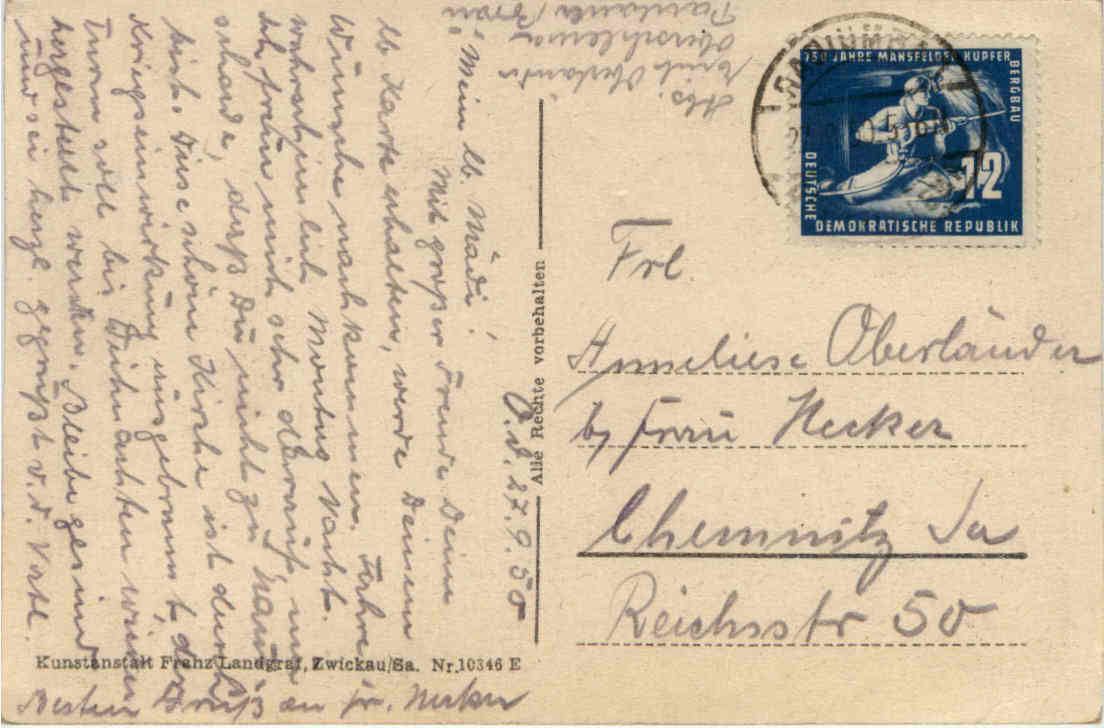 Abs.
Oberländer
Oberschlema
O.S. 27.9.50
Mein lb. Mädi!
Mit großer Freude Deine
lb. Karte erhalten, werde Deinem
Wunsche nachkommen. Fahre
wahrscheinlich Montag Nacht.
Ich freue mich sehr darauf, nur
schade, daß Du nicht zu Haus
bist. Diese schöne Kirche ist durch
Kriegseinwirkung ausgebrannt, der
Turm soll bis Weihnachten wieder
hergestellt werden. Bleibe gesund
und sei herzl. gegrüßt v. d. Vatl.
Besten Gruß an Fr. Hecker
Kunstanstalt Franz Landgraf, Zwickau/Sa. Nr.10346 E
Alle Rechte vorbehalten
750 JAHRE MANSFELDER KUPFER
BERGBAU
12
DEUTSCHE
DEMOKRATISCHE REPUBLIK
Frl.
Anneliese Oberländer
b/ Frau Hecker
Chemnitz Sa
Reichsstr 50